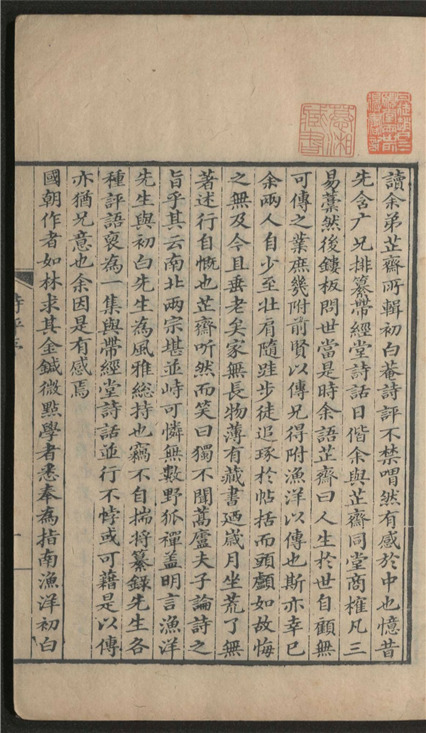 讀余弟芷齋所輯初白菴詩評不禁喟然有感於中也憶昔
先含广兄排纂帶經堂詩話日偕余與芷齋同堂商榷凡三
易藁然後鏤板問世當是時余語芷齋曰人生於世自顧無
可傳之業庶幾附前賢以傳兄得附漁洋以傳也斯亦幸已
余兩人自少至壯肩隨跬步徒追琢於帖括而頭顱如故悔
之無及今且垂老矣家無長物薄有藏書廼歲月坐荒了無
著述行自慨也芷齋听然而笑曰獨不聞蒿廬夫子論詩之
旨乎其云南北兩宗堪並峙可憐無數野狐禪盖明言漁洋
先生與初白先生為風雅総持也竊不自揣將纂錄先生各
種評語裒為一集與帶經堂詩話並行不悖或可藉是以傳
亦猶兄意也余因是有感焉
國朝作者如林求其金鍼微點學者悉奉為指南漁洋初白
詩評序
一
藏書